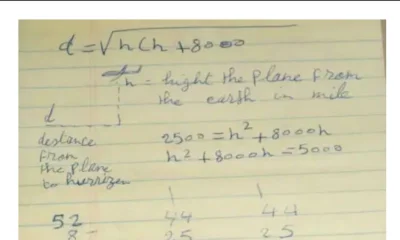 d = √h(h+8000
h = hight the plane from
the earth in mile
d
destance
from
the plane
to horrizen
2500 = h² + 8000h
h² + 8000h = 5000
52 44 44
8 25 25